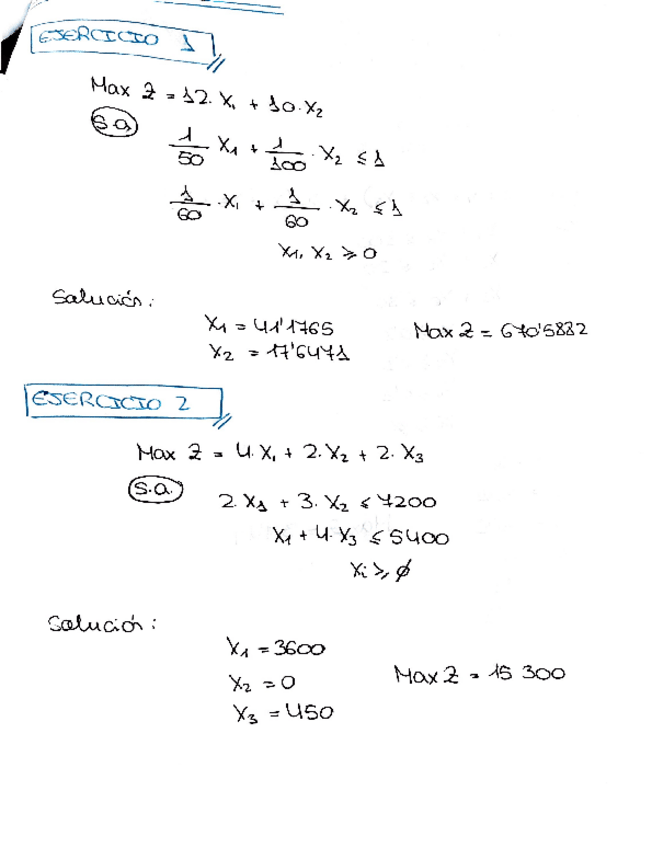 EJERCICIO 1
Max Z = 12·X₁ + 10·X₂
s.a
1/50 X₁ + 1/100·X₂ ≤ 1
1/60·X₁ + 1/60·X₂ ≤ 1
X₁, X₂ ≥ 0
Solución:
X₁ = 41'1765 Max Z = 670'5882
X₂ = 17'6471
EJERCICIO 2
Max Z = 4·X₁ + 2·X₂ + 2·X₃
s.a.
2·X₁ + 3·X₂ ≤ 7200
X₁ + 4·X₃ ≤ 5400
Xi ≥ ∅
Solución:
X₁ = 3600
X₂ = 0 Max Z = 15 300
X₃ = 450